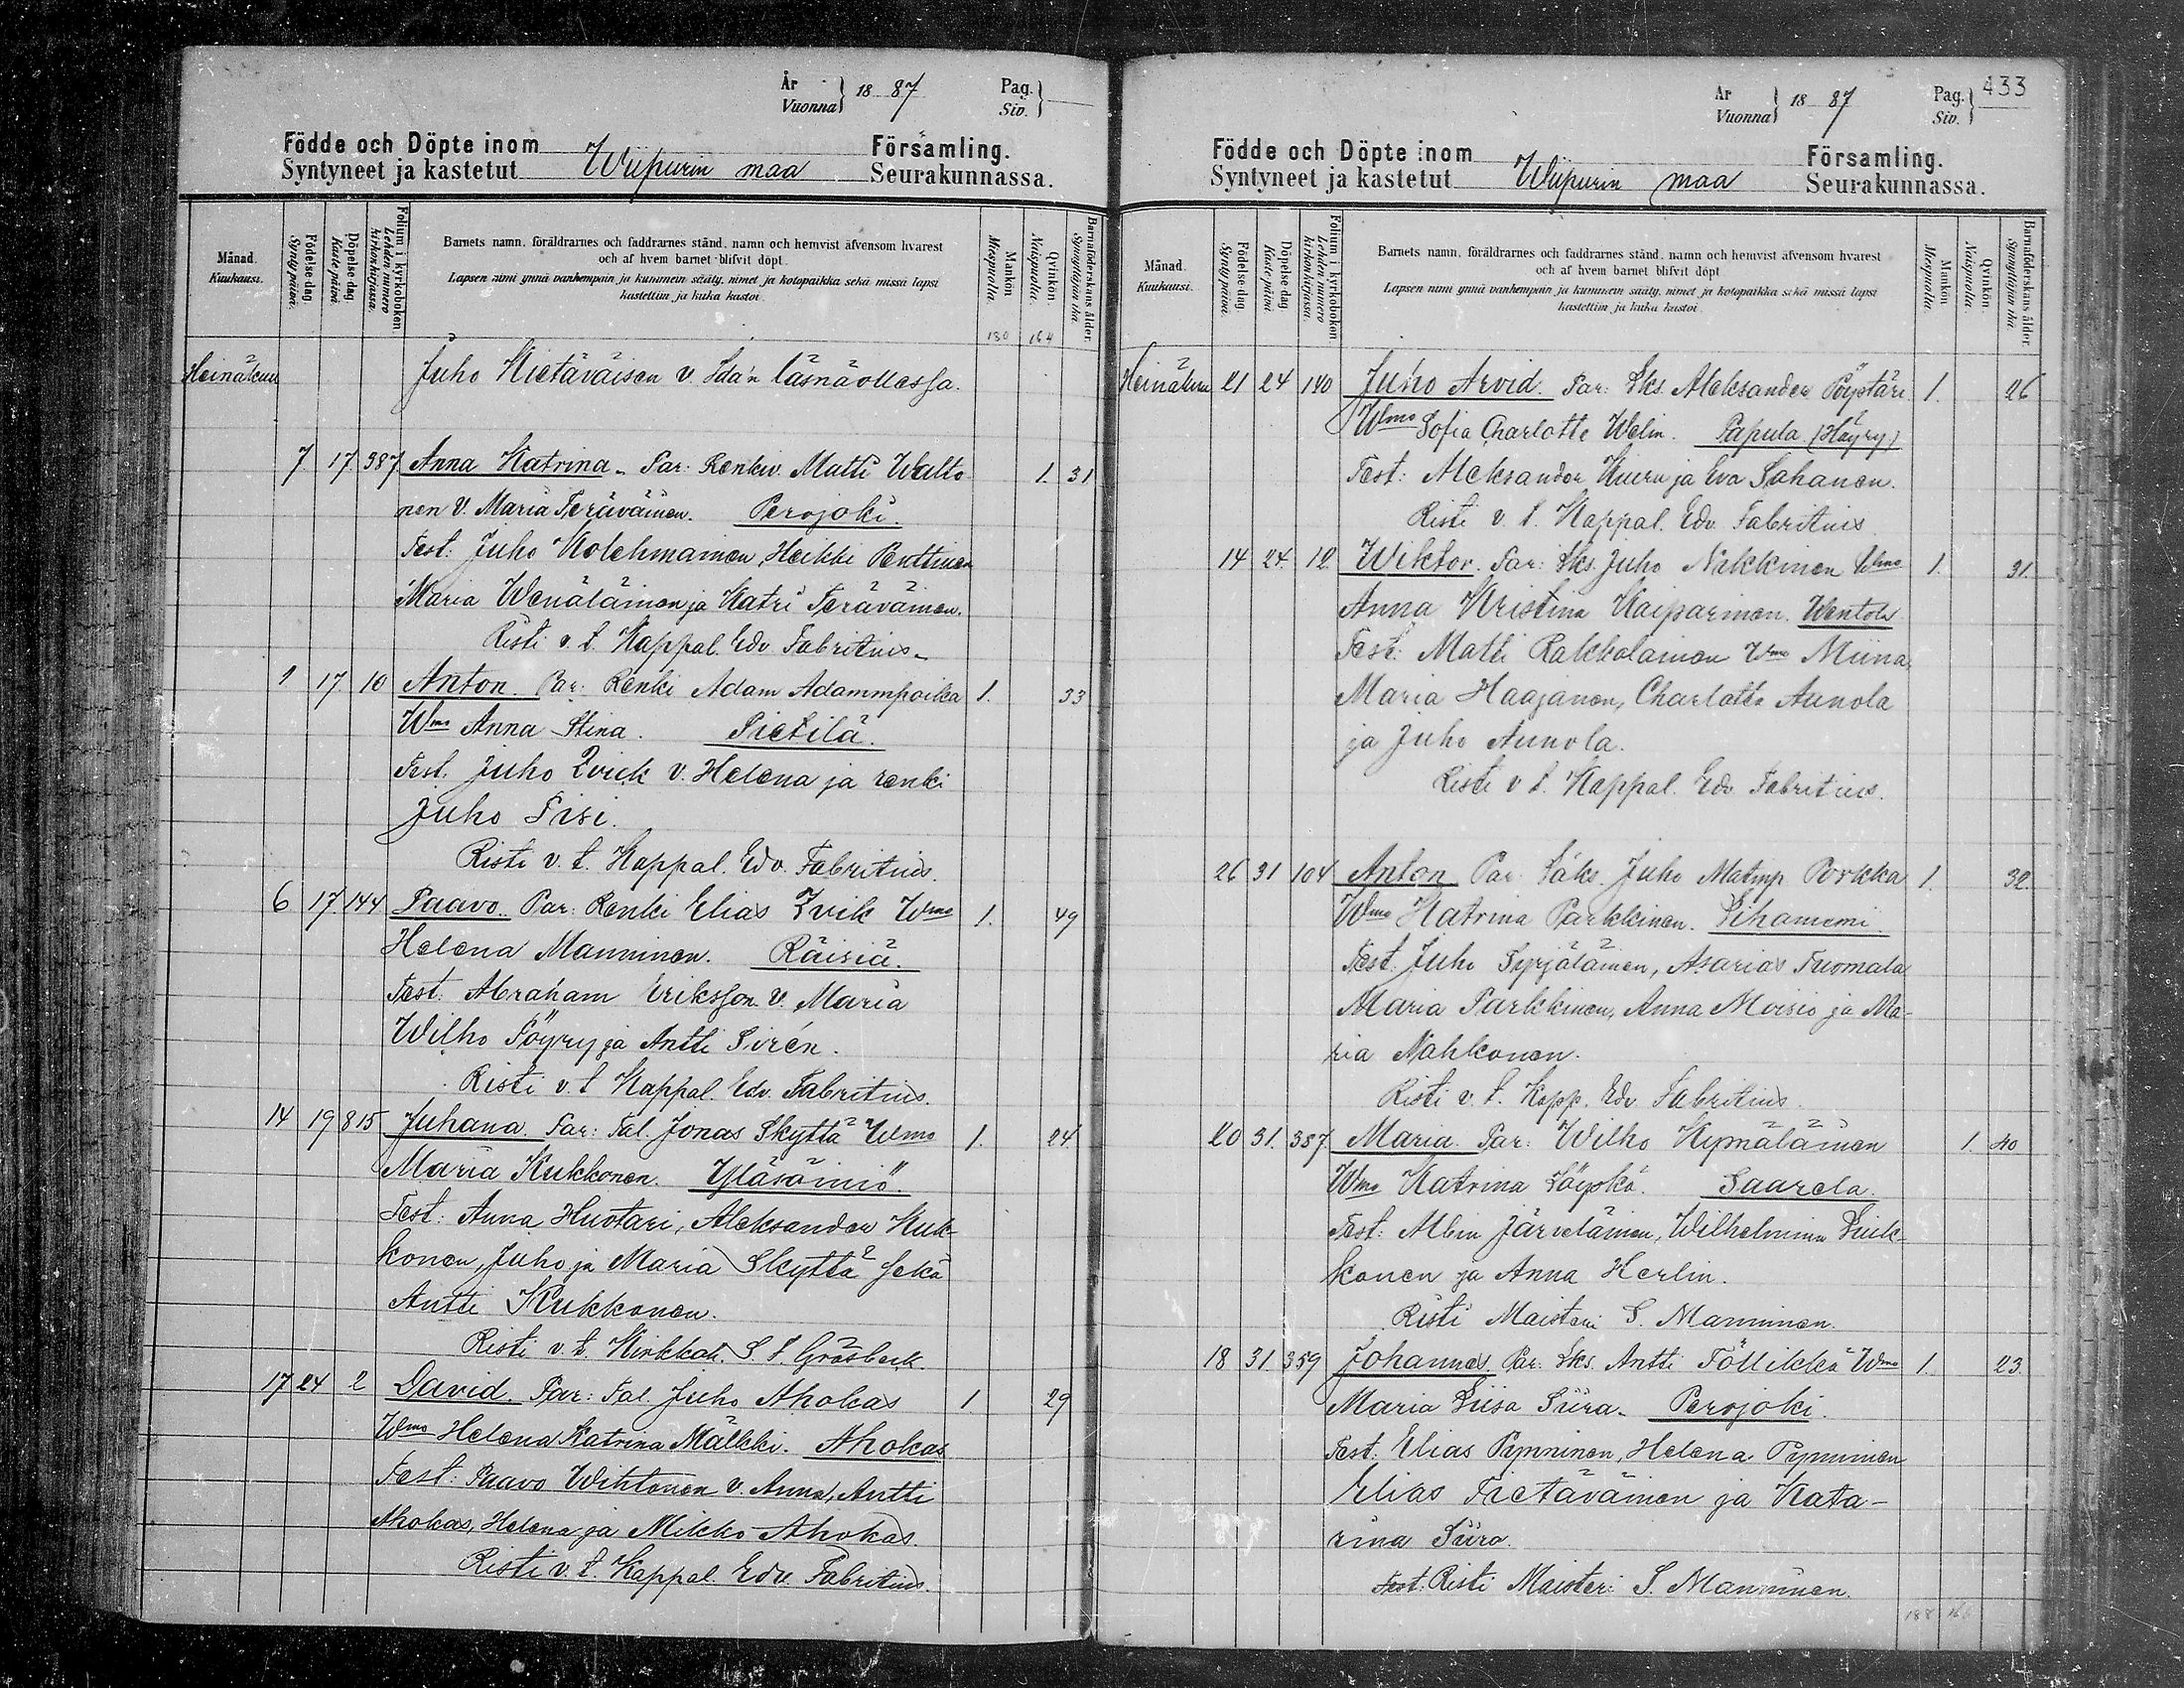 År
Vuonna } 18 87
Pag.
Siv. }
Födde och Döpte inom
Syntyneet ja kastetut Wiipurin maa Församling.
Seurakunnassa.
Månad.
Kuukausi.
Födelsedag.
Syntypäivä.
Döpelsedag.
Kastepäivä.
Folium i kyrkoboken.
Lehden numero kirkonkirjassa.
Barnets namn, föräldrarnes och faddrarnes stånd, namn och hemvist äfvensom hvarest
och af hvem barnet blifvit döpt.
Lapsen nimi ynnä vanhempain ja kummein sääty, nimet ja kotopaikka sekä missä lapsi
kastettiin ja kuka kastoi.
Mankön.
Miespuolia.
Qvinkön.
Naispuolia.
Barnaföderskans ålder.
Synnyttäjän ikä.
180 164
Heinäkuu Juho Hietäväisen v. Ida'n läsnäollessa.
7 17 387 Anna Katrina. Par: Renkiv. Matti Walto- 1. 31
nen V. Maria Teräväinen. Perojoki.
Test: Juho Kolehmainen, Heikki Penttinen
Maria Wenäläinen ja Katri Teräväinen.
Risti v. t. Kappal. Edv. Fabritius.
1 17 10 Anton. Par: Renki Adam Adammpoika 1. 33
Wmo Anna Stina. Pietilä.
Test. Juho Qvick v. Helena ja renki
Juho Piri.
Risti v. t. Kappal. Edv. Fabritius.
6 17 144 Paavo. Par: Renki Elias Qvik Wmo 1. 49
Helena Manninen. Räisiä.
Test: Abraham Eriksson v. Maria
Wilho Pöyry ja Antti Sirén.
Risti v. t. Kappal. Edv. Fabritius.
14 19 815 Juhana. Par: Tal. Jonas Skyttä Wmo 1. 24.
Maria Kukkonen. Yläsäiniö.
Test: Anna Huotari, Aleksander Kuk-
konen, Juho ja Maria Skyttä sekä
Antti Kukkonen.
Risti v. t. Kirkkoh. S. J. Gråsbeck.
17 24 2 David. Par: Tal. Juho Ahokas 1 29
Wmo Helena Katrina Mälkki. Ahokas
Test: Paavo Wihtonen v. Anna, Antti
Ahokas, Helena ja Mikko Ahokas.
Risti v. t. Kappal. Edv. Fabritius.
År
Vuonna } 18 87
Pag.
Siv. } 433
Födde och Döpte inom
Syntyneet ja kastetut Wiipurin maa Församling.
Seurakunnassa.
Månad.
Kuukausi.
Födelsedag.
Syntypäivä.
Döpelsedag.
Kastepäivä.
Folium i kyrkoboken.
Lehden numero kirkonkirjassa.
Barnets namn, föräldrarnes och faddrarnes stånd, namn och hemvist äfvensom hvarest
och af hvem barnet blifvit döpt.
Lapsen nimi ynnä vanhempain ja kummein sääty, nimet ja kotopaikka sekä missä lapsi
kastettiin ja kuka kastoi.
Mankön.
Miespuolia.
Qvinkön.
Naispuolia.
Barnaföderskans ålder.
Synnyttäjän ikä.
Heinäkuu 21 24 140 Juho Arvid. Par: Lks. Aleksander Pöystäri 1. 26
Wmo Sofia Charlotte Welin. Papula (Häyry)
Test: Aleksander Kueru ja Eva Sahanen.
Risti v. t. Kappal. Edv. Fabritius
14 24 12 Wiktor. Par: Lks. Juho Nakkinen Wmo 1. 31.
Anna Kristina Kaiparinen. Wentola
Test: Matti Rakkolainen Wmo Miina
Maria Haajanen, Charlotta Aunola
ja Juho Aunola.
Risti v t. Kappal. Edv. Fabritius.
26 31 104 Anton Par: Läks. Juho Matinp. Porkka 1. 32.
Wmo Katrina Parkkinen. Lihaniemi.
Test: Juho Syrjäläinen, Asarias Tuomala
Maria Parkkinen, Anna Moisio ja Ma-
ria Nahkonen.
Risti v. t. Kapp. Edv. Fabritius
20 31. 387 Maria. Par: Wilho Kymäläinen 1. 40
Wmo Katrina Löyskä. Saarela.
Test: Albin Järveläinen, Wilhelmina Liuk-
konen ja Anna Herlin.
Risti Maisteri S. Manninen.
18 31. 359 Johannes. Par: Lks. Antti Töllikkä Wmo 1. 23.
Maria Liisa Siira. Perojoki.
Test. Elias Pynninen, Helena Pynninen
Elias Tietäväinen ja Kata-
rina Siira.
Test. Risti Maisteri S. Manninen.
188